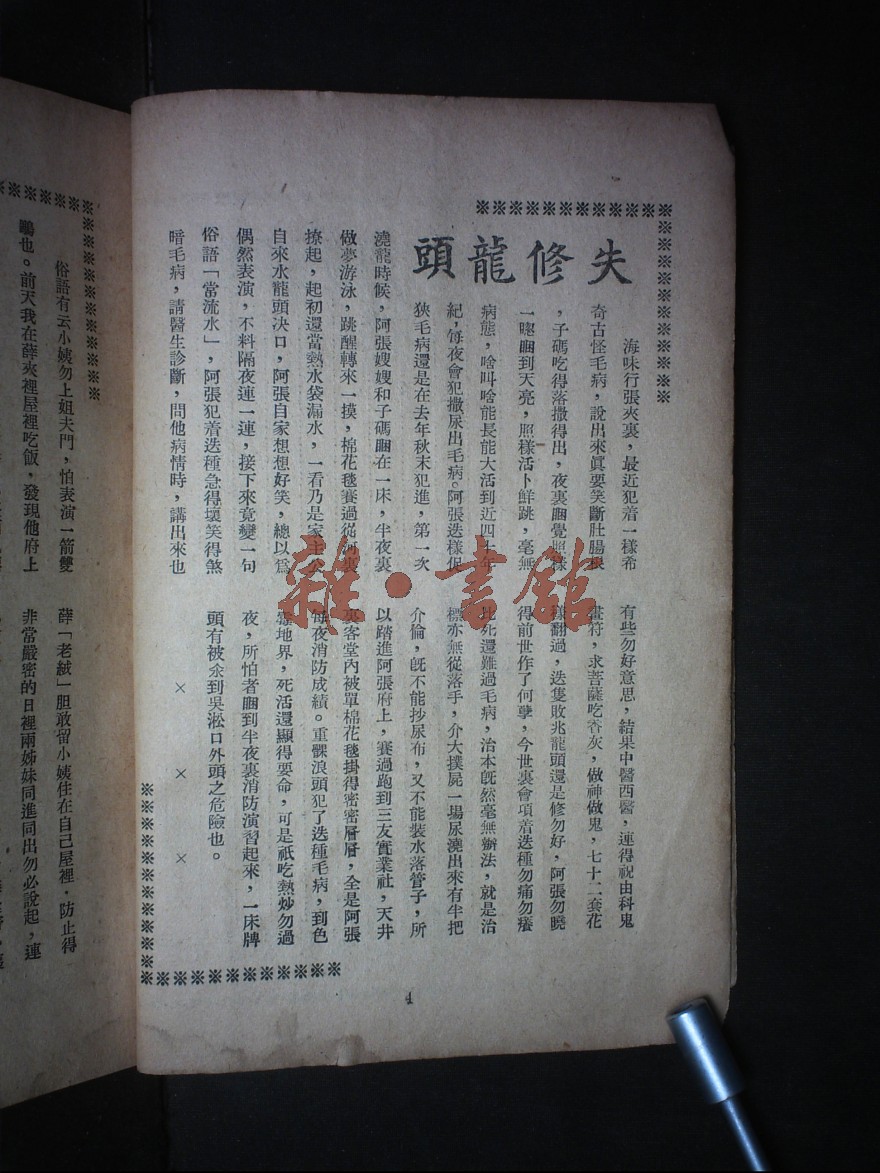 失修龍頭
海味行張夾裏，最近犯着一樣希
奇古怪毛病，說出來眞要笑斷肚腸根
，子碼吃得落撒得出，夜裏睏覺照樣
一𥇦睏到天亮，照樣活卜鮮跳，毫無
病態，啥叫啥能長能大活到近四十年
紀，每夜會犯撒尿出毛病。阿張迭樣促
狹毛病還是在去年秋末犯進，第一次
澆龍時候，阿張嫂嫂和子碼睏在一床，半夜裏
做夢游泳，跳醒轉來一摸，棉花毯賽過從河裏
撩起，起初還當熱水袋漏水，一看乃是家主公
自來水龍頭决口，阿張自家想想好笑，總以爲
偶然表演，不料隔夜連一連，接下來竟變一句
俗語「當流水」，阿張犯着迭種急得壞笑得煞
暗毛病，請醫生診斷，問他病情時，講出來也
有些勿好意思，結果中醫西醫，連得祝由科鬼
畫符，求菩薩吃香灰，做神做鬼，七十二套花
樣翻過，迭隻敗兆龍頭還是修勿好，阿張勿曉
得前世作了何孽，今世裏會項着迭種勿痛勿癢
比死還難過毛病，治本旣然毫無辦法，就是治
標亦無從落手，介大撲屍一場尿澆出來有半把
介倫，旣不能抄尿布，又不能裝水落管子，所
以踏進阿張府上，賽過跑到三友實業社，天井
客堂內被單棉花毯掛得密密層層，全是阿張
每夜消防成績。重髁浪頭犯了迭種毛病，到色
地界，死活還顯得要命，可是祇吃熱炒勿過
夜，所怕者睏到半夜裏消防演習起來，一床牌
頭有被氽到吳淞口外頭之危險也。
× × ×
4
俗語有云小姨勿上姐夫門，怕表演一箭雙
鵰也。前天我在薛夾裡屋裡吃飯，發現他府上
薛「老絨」胆敢留小姨住在自己屋裡，防止得
非常嚴密的日裡兩姊妹同進同出勿必說起，連
雜·書館